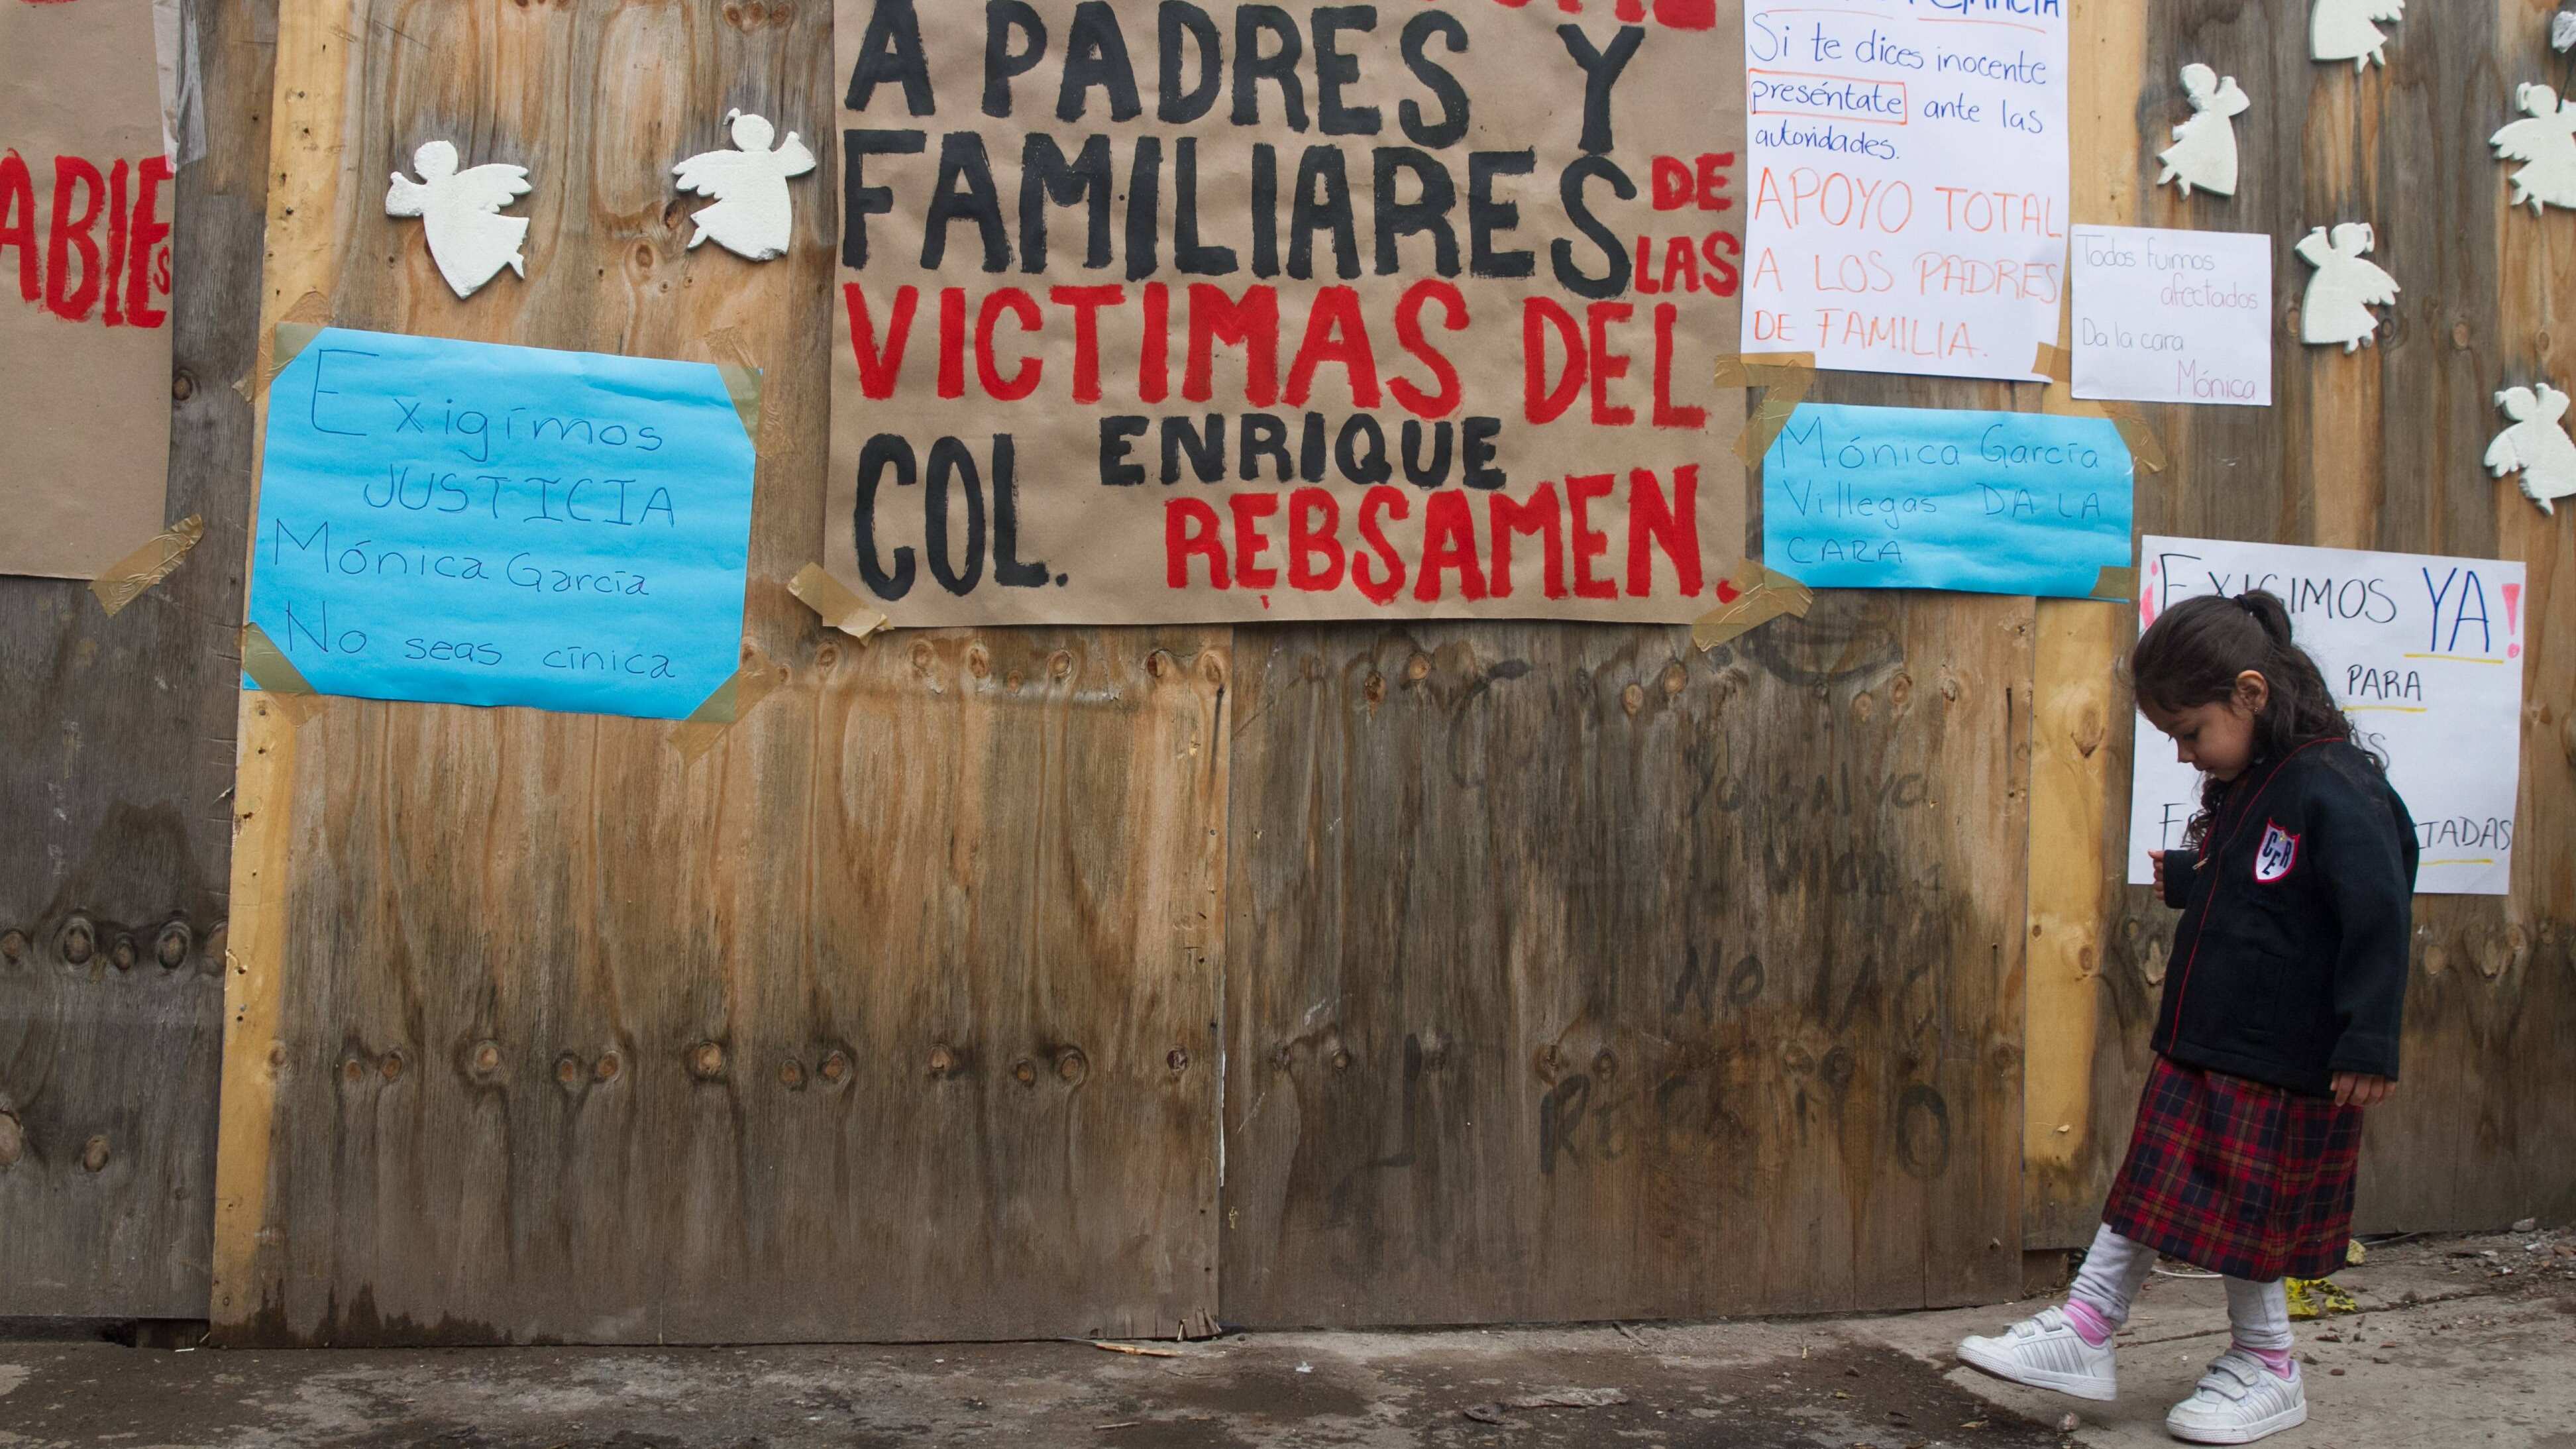 ABLES
A PADRES Y
FAMILIARES DE
LAS
VICTIMAS DEL
COL. ENRIQUE
REBSAMEN.
Exigimos
JUSTICIA
Mónica García
No seas cínica
Si te dices inocente
preséntate ante las
autoridades.
APOYO TOTAL
A LOS PADRES
DE FAMILIA.
Todos fuimos
afectados
Da la cara
Mónica
Mónica García
Villegas DA LA
CARA
¡EXIGIMOS YA!
PARA
CER
YO SALVO
NO